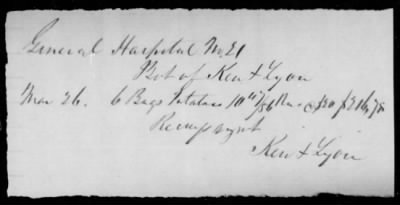 General Hospital No. 21
Bot of Kew & Lyon
Mar 26. 6 Bags Potatoes 10 Bus @ $20 $216,78
Recvd paymt
Kew & Lyon